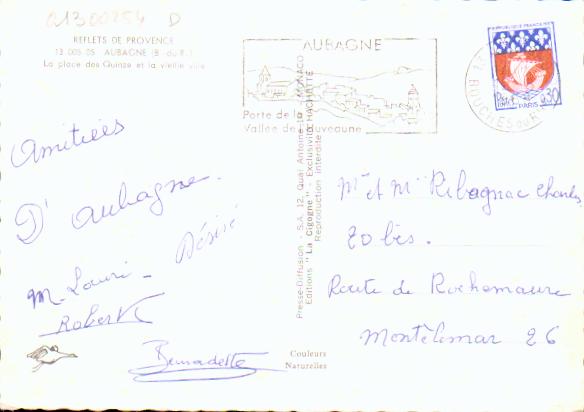 01300254 D
REFLETS DE PROVENCE
13 005 05 AUBAGNE (B.-du-R.)
La place des Quinze et la vieille ville
AUBAGNE
Porte de la
Vallée de l'Huveaune
REPUBLIQUE FRANCAISE
PARIS
0,30
BOUCHES DU R
Amitiées
D'aubagne.
Désiré
M. Louri -
Robert
Bernadette
Presse-Diffusion S.A. 12, Quai Antoine 1er - MONACO
Editions "La Cigogne" - Exclusivité HACHETTE
Reproduction interdite
Couleurs
Naturelles
Mr et Mme Ribagnac Charles
20 bis.
Route de Rochemaure
Montèlimar 26